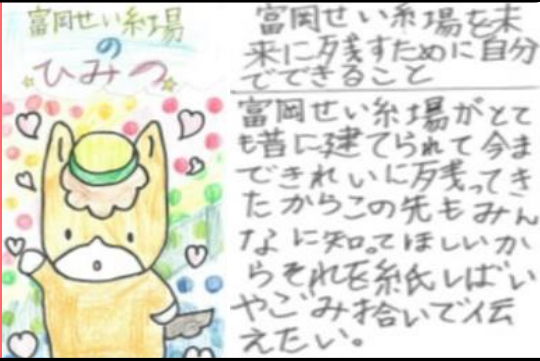 富岡せい糸場
の
ひみつ
富岡せい糸場を未
来に残すために自分
でできること
富岡せい糸場がとて
も昔に建てられて今ま
できれいに残ってき
たからこの先もみん
なに知ってほしいか
らそれを紙しばい
やごみ拾いで伝
えたい。